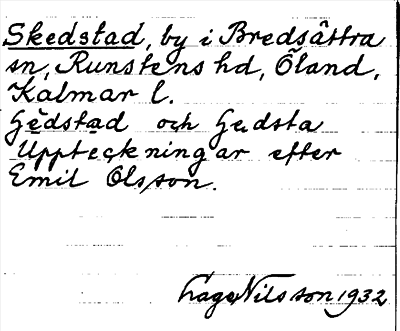 Skedstad, by i Bredsättra
sn, Runstens hd, Öland,
Kalmar l.
Gedstad och Gedsta
Uppteckningar efter
Emil Olsson.
Lage Nilsson 1932